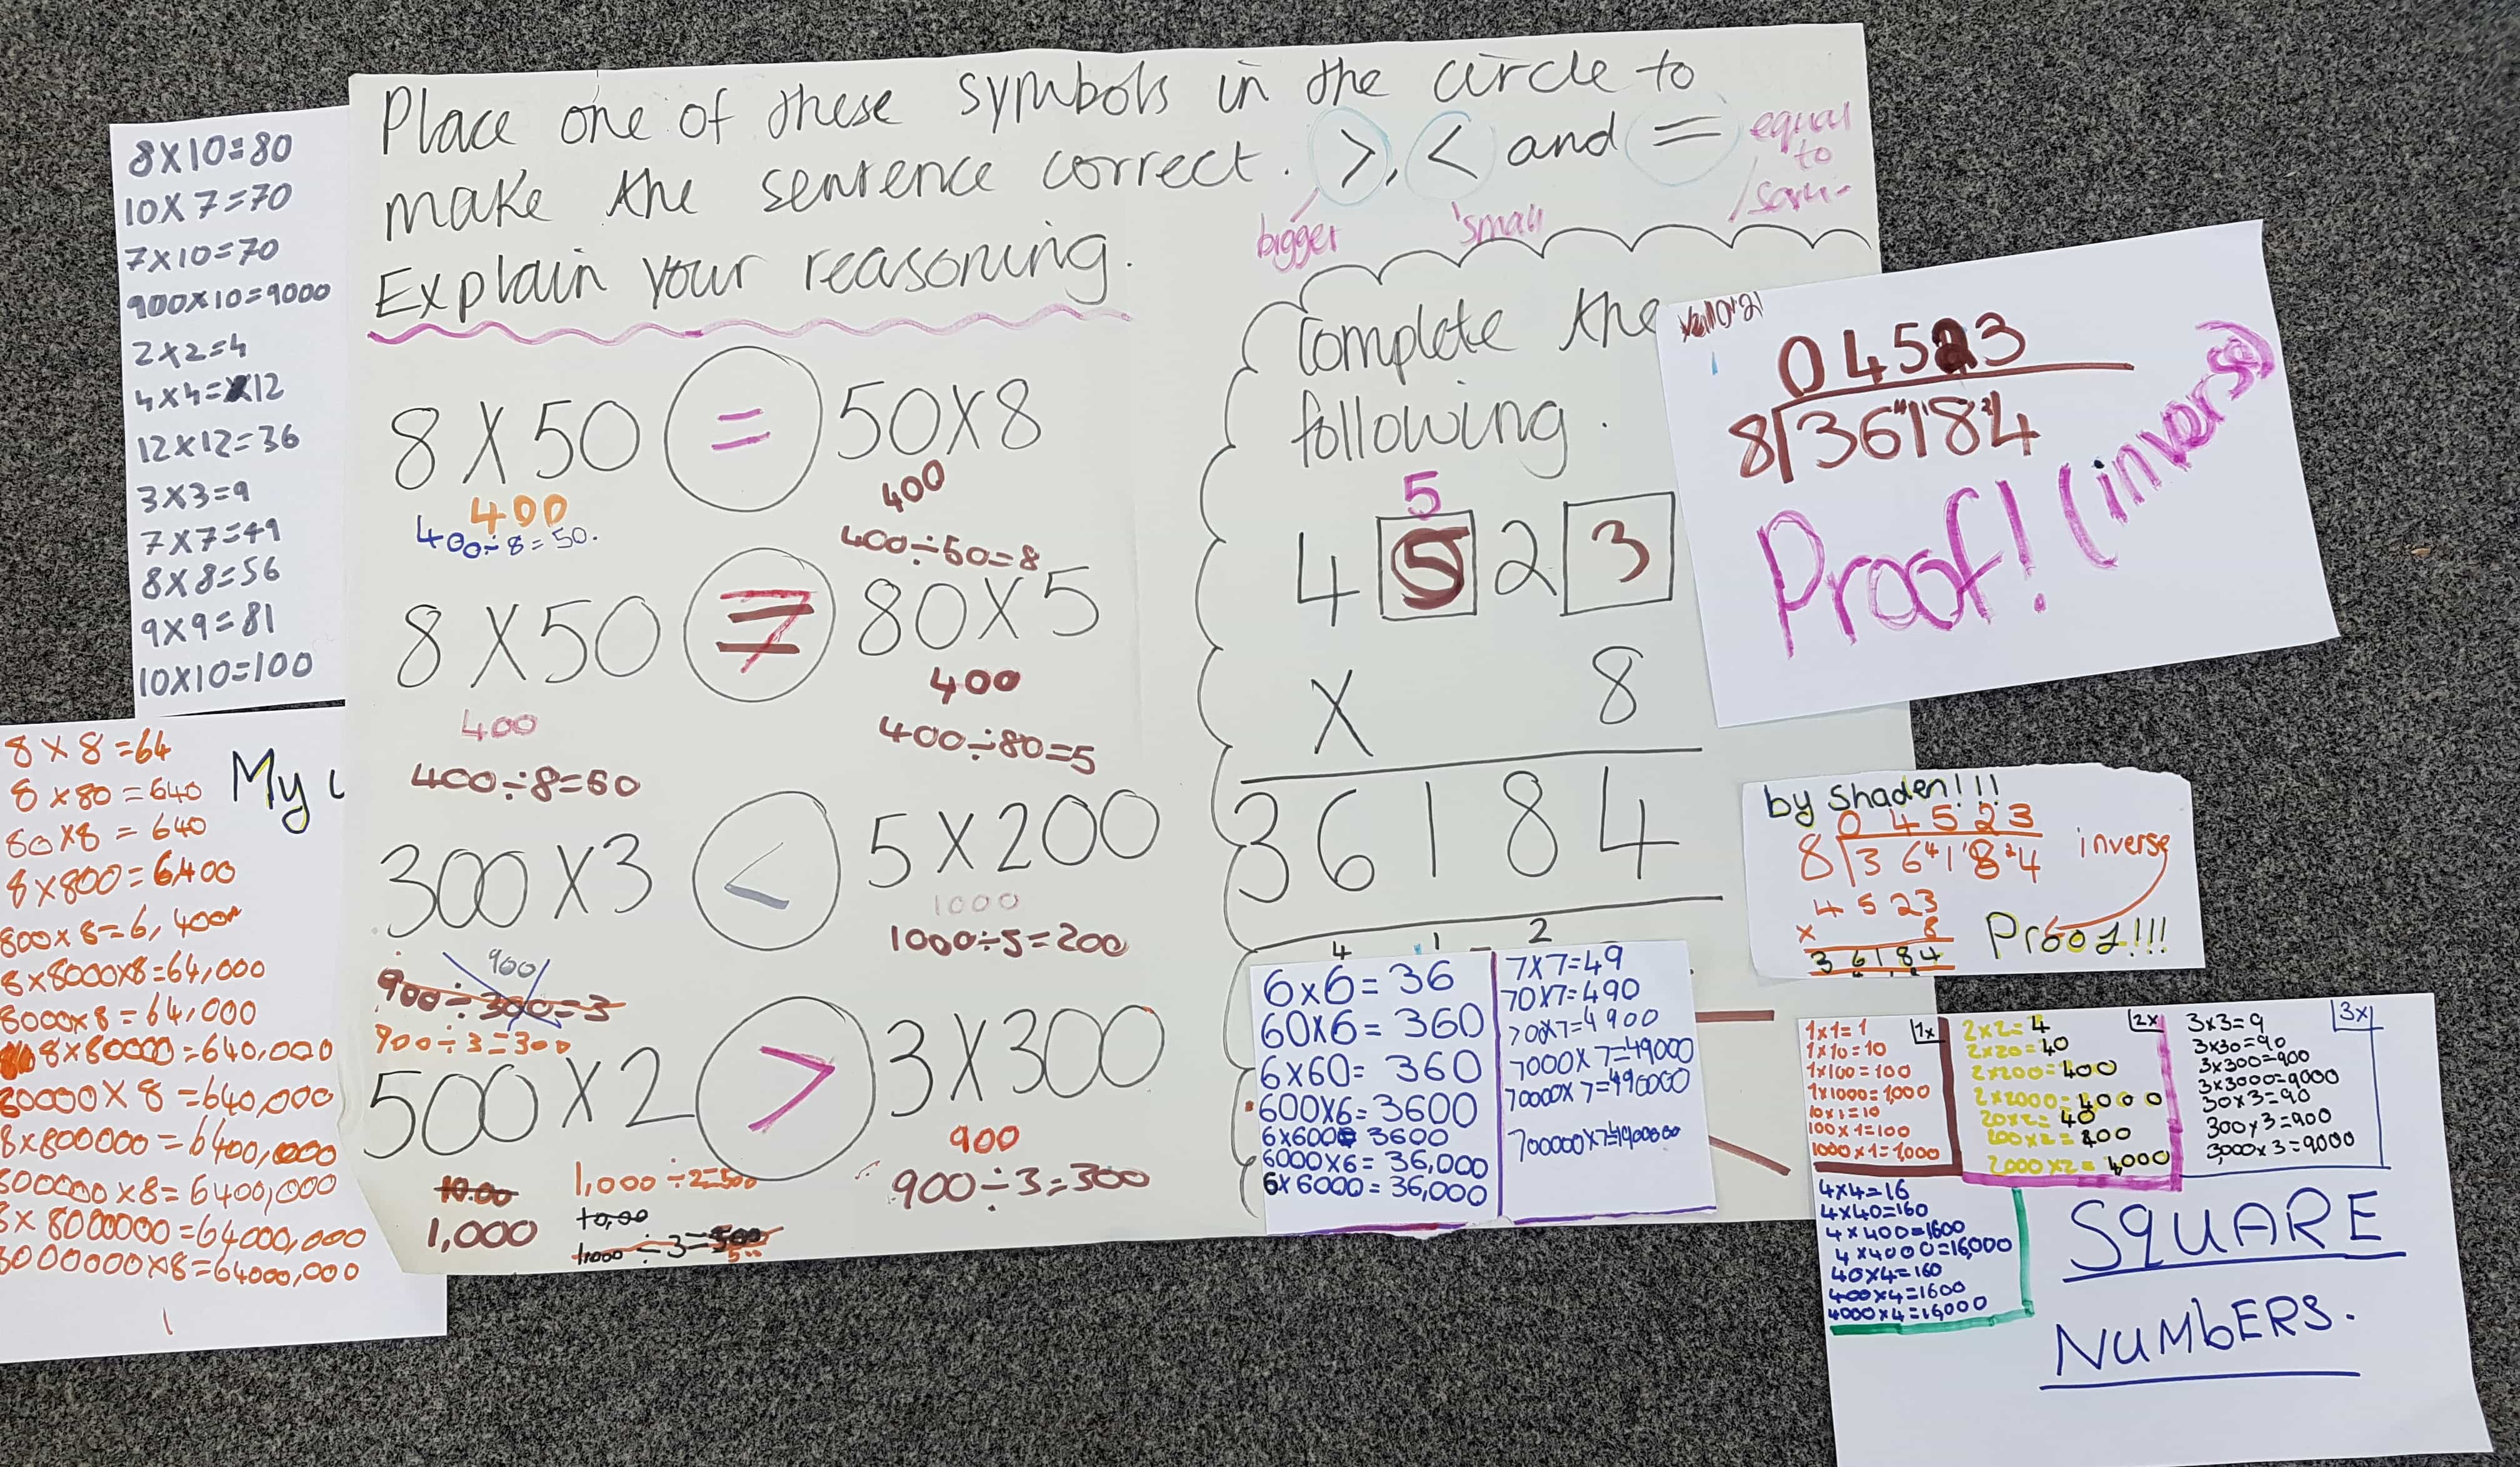 8X10=80
10X7=70
7X10=70
900X10=9000
2X2=4
4X4=12
12X12=36
3X3=9
7X7=49
8X8=56
9X9=81
10X10=100
8 X 8 =64
8 X80 = 640
80 X8 = 640
8 X800 = 6400
800x 8=6,400
8x8000x8=64,000
8000x8=64,000
8x80000=640,000
80000X 8 =640,000
8x800000 = 6400,000
800000 x8= 6400,000
8x 8000000 =64000,000
8000000x8=64000,000
My
Place one of these symbols in the circle to
make the sentence correct. >, < and =
bigger
small
equal
to
Explain your reasoning.
8 X 50 = 50X8
400
400
400÷8=50.
400÷50=8
8 X 50 = 80X5
400
400
400÷8=50
400÷80=5
300X3 < 5X200
900
1000
1000÷5=200
900÷300=3
900÷3=300
500X2 > 3X300
10.00
1,000
1,000÷2=500
10,00
1000÷3=500
500
900
900÷3=300
Complete the
following.
5
4 5 2 3
X 8
36184
4 1 2
04523
8 36⁴1¹8²4
Proof! (inverse)
by Shaden!!!
0 4 5 2 3
8 3 6⁴1¹8²4
inverse
4 5 23
x 8
3 6 1 8 4
Proof!!!
6x6= 36
60x6= 360
6x60= 360
600x6= 3600
6x600= 3600
6000x6= 36,000
6x6000= 36,000
7X7=49
70X7=490
70X7=4900
7000X7=49000
70000X7=490000
700000x7=4900000
1x
1x1=1
1x10=10
1x100=100
1x1000=1,000
10x1=10
100x1=100
1000x1=1,000
2x
2x2=4
2x20=40
2x200=400
2x2000=4000
20x2=40
200x2=400
2000x2=4000
3x
3x3=9
3x30=90
3x300=900
3x3000=9000
30x3=90
300x3=900
3000x3=9000
4x4=16
4x40=160
4x400=1600
4x4000=16,000
40x4=160
400x4=1600
4000x4=16,000
SQUARE
NUMbERS.